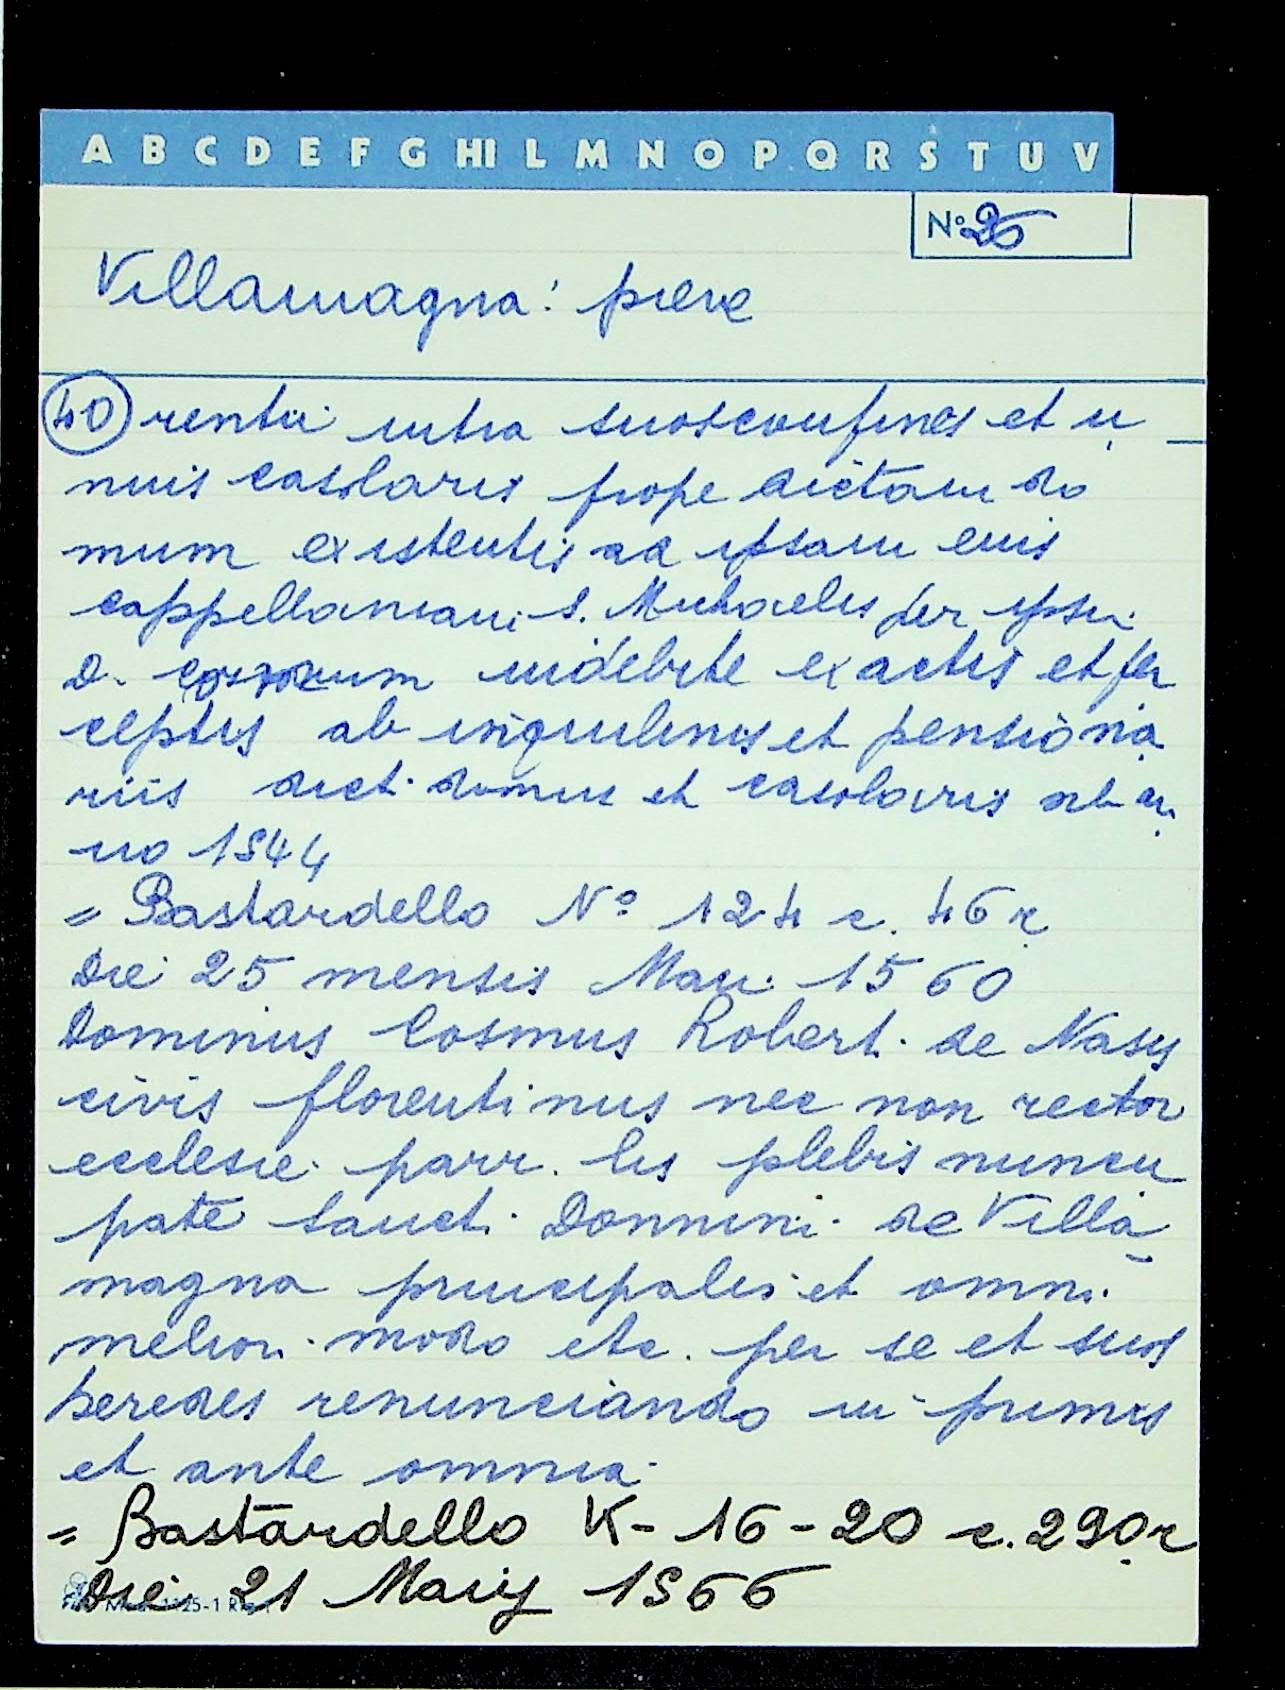 A B C D E F G HI L M N O P Q R S T U V
N° 26
Villamagna: pieve
40 rentii intra suos confines et u
nuis casolaris prope dictam do
mum existentis ad ipsam eius
cappellaniam S. Michaelis per ipsu.
D. indebite exactis et per
ceptis ab inquilinis et pensiona
riis dict. domus et casolaris ab an
no 1544
= Bastardello N° 124 c. 46r
Die 25 mensis Maii 1560
Dominus Cosmus Robert. de Nasis
civis florentinus nec non rector
ecclesie parr. lis plebis nuncu
pate Sanct. Donnini de Villa
magna principalis et omni
melior. modo etc. per se et suos
heredes renunciando in primis
et ante omnia.
= Bastardello K-16-20 c. 290r
Die 21 Maij 1566